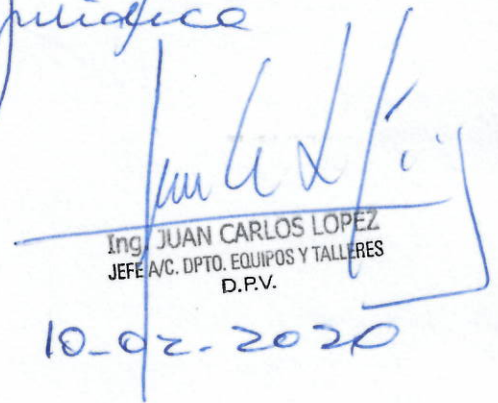 juridica
Ing. JUAN CARLOS LOPEZ
JEFE A/C. DPTO. EQUIPOS Y TALLERES
D.P.V.
10-02-2020